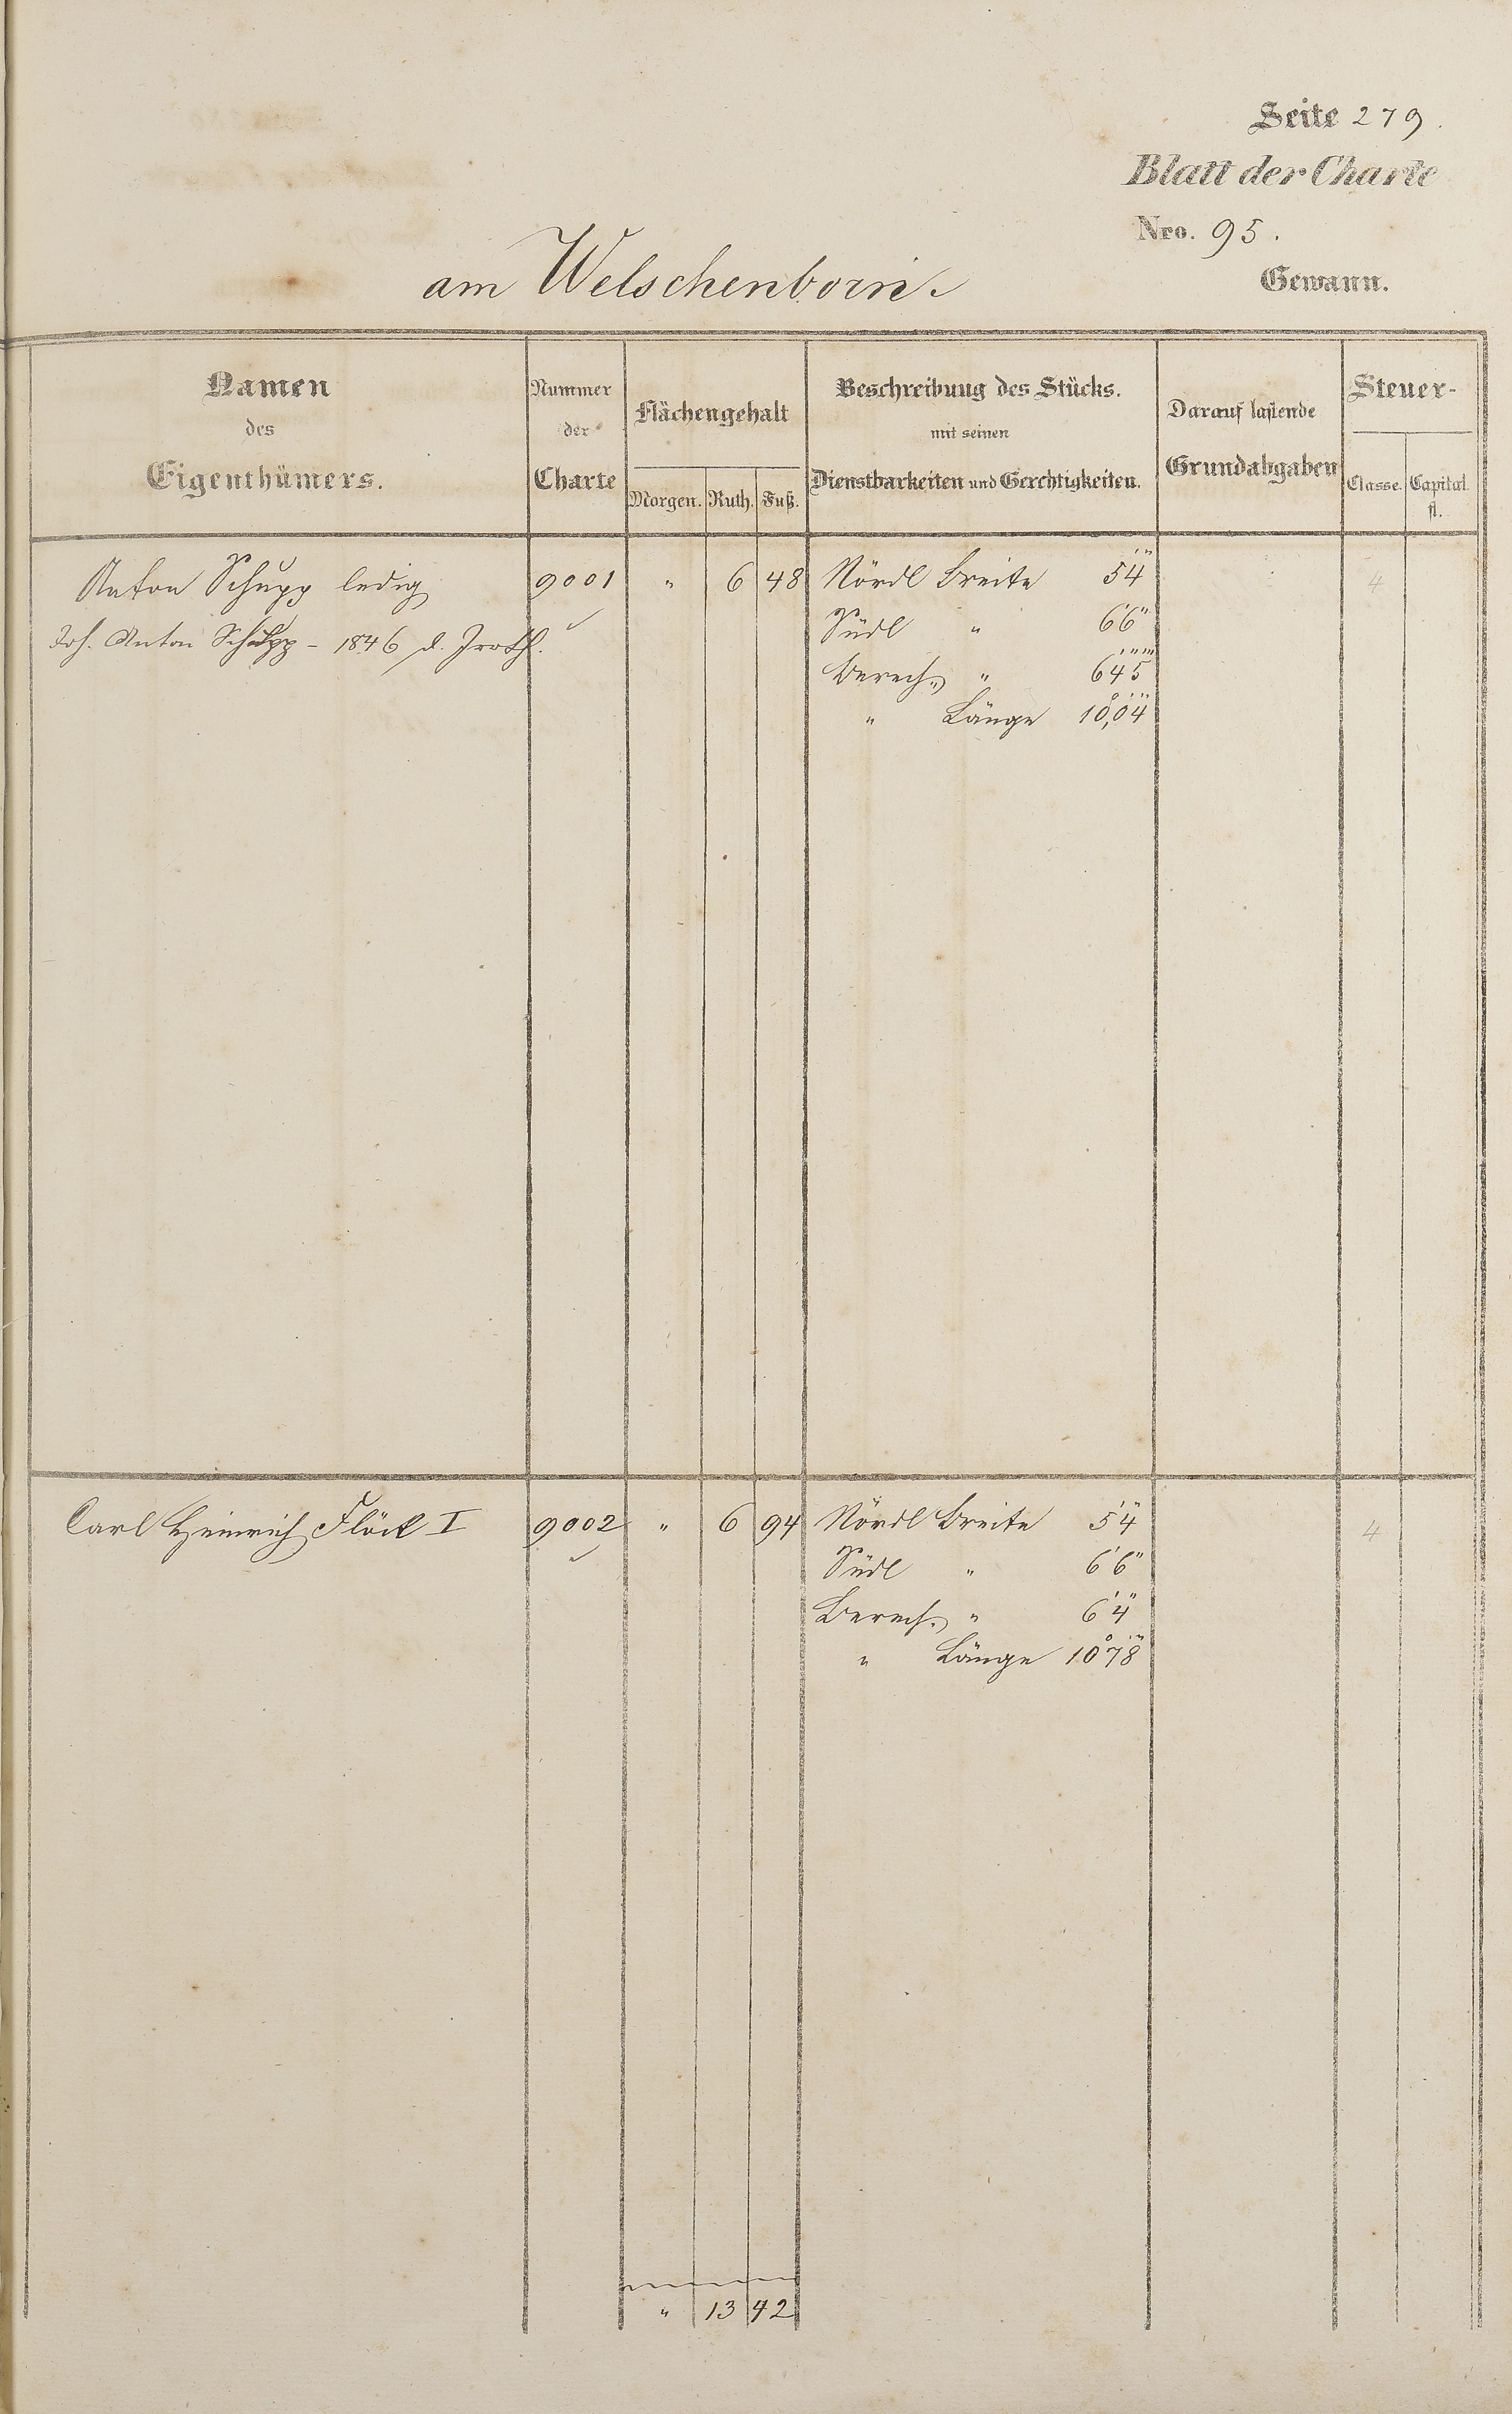 Seite 279.
Blatt der Charte
Nro. 95.
am Welschenborn. Gewann.
Namen des Eigenthümers.
Nummer der Charte
Flächengehalt
Morgen. Ruth. Fuß.
Beschreibung des Stücks.
mit seinen
Dienstbarkeiten und Gerechtigkeiten.
Darauf lastende
Grundabgaben
Steuer-
Classe. Capital.
fl.
Anton Schupp ledig 9001 " 6 48 Nördl Breite 5'4" 4
Joh. Anton Schupp - 1846 d. Südl " 6'6"
Berech. " 6'4"5'''
" Länge 10°,0'4"
Carl Heinrich Flöck I 9002 " 6 94 Nördl Breite 5'4" 4
Südl " 6'6"
Berech. " 6'4"
" Länge 10°7'8"
" 13 42